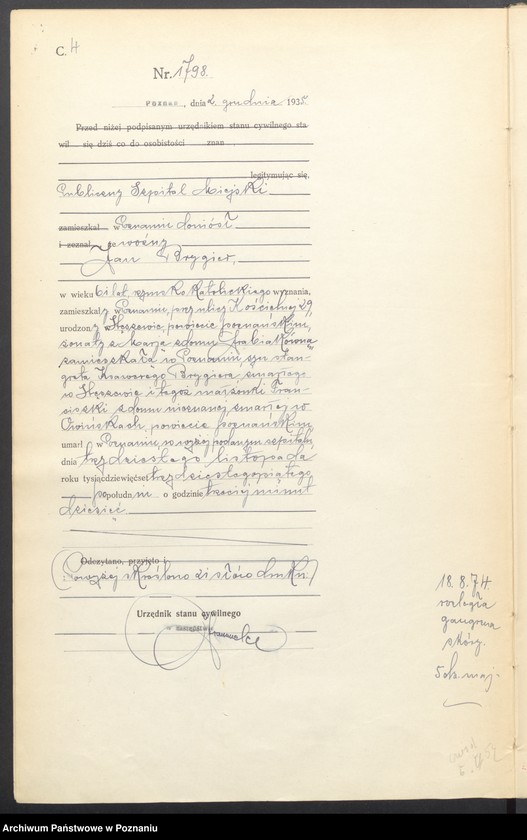 C. H
Nr. 1798.
Poznań, dnia 2 grudnia 1935.
Przed niżej podpisanym urzędnikiem stanu cywilnego sta
wił się dziś co do osobistości znan
legitymując się,
Publiczny Szpital Miejski
zamieszkał w Poznaniu doniósł
i zeznał, że woźny
Jan Brygier,
w wieku 61 lat, rzymsko katolickiego wyznania,
zamieszkały w Poznaniu, przy ulicy Kościelnej 29,
urodzony w powiecie poznańskim,
żonaty z Marją z domu
zamieszkałą w Poznaniu, syn stan-
greta Ksawerego Brygiera, zmarłego
w i tegoż małżonki Fran-
ciszki z domu nieznanej, zmarłej w
Owińskach, powiecie poznańskim,
umarł w Poznaniu, w wyżej podanym szpitalu,
dnia trzydziestego listopada
roku tysiącdziewięćset trzydziestegopiątego
po południu o godzinie trzeciej minut
dziesięć
Odczytano, przyjęto i
Powyżej skreślono 21 słów druku.
Urzędnik stanu cywilnego
w zastępstwie
18. 8. 74.
rozległa
skóry.